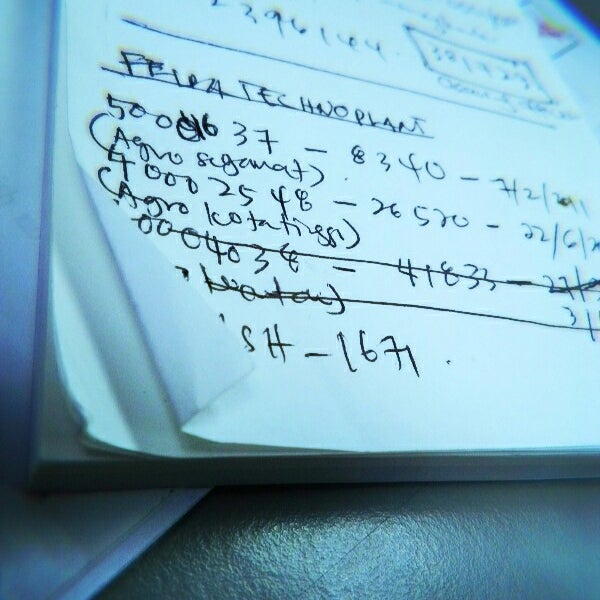 2396144
381723
FELDA TECHNOPLANT
50001637 - 8340 - 7/2/2011
(Agro segamat)
40002548 - 26520 - 22/6/20
(Agro kota tinggi)
0004038 - 41833 - 27/
3/
SH - 1671